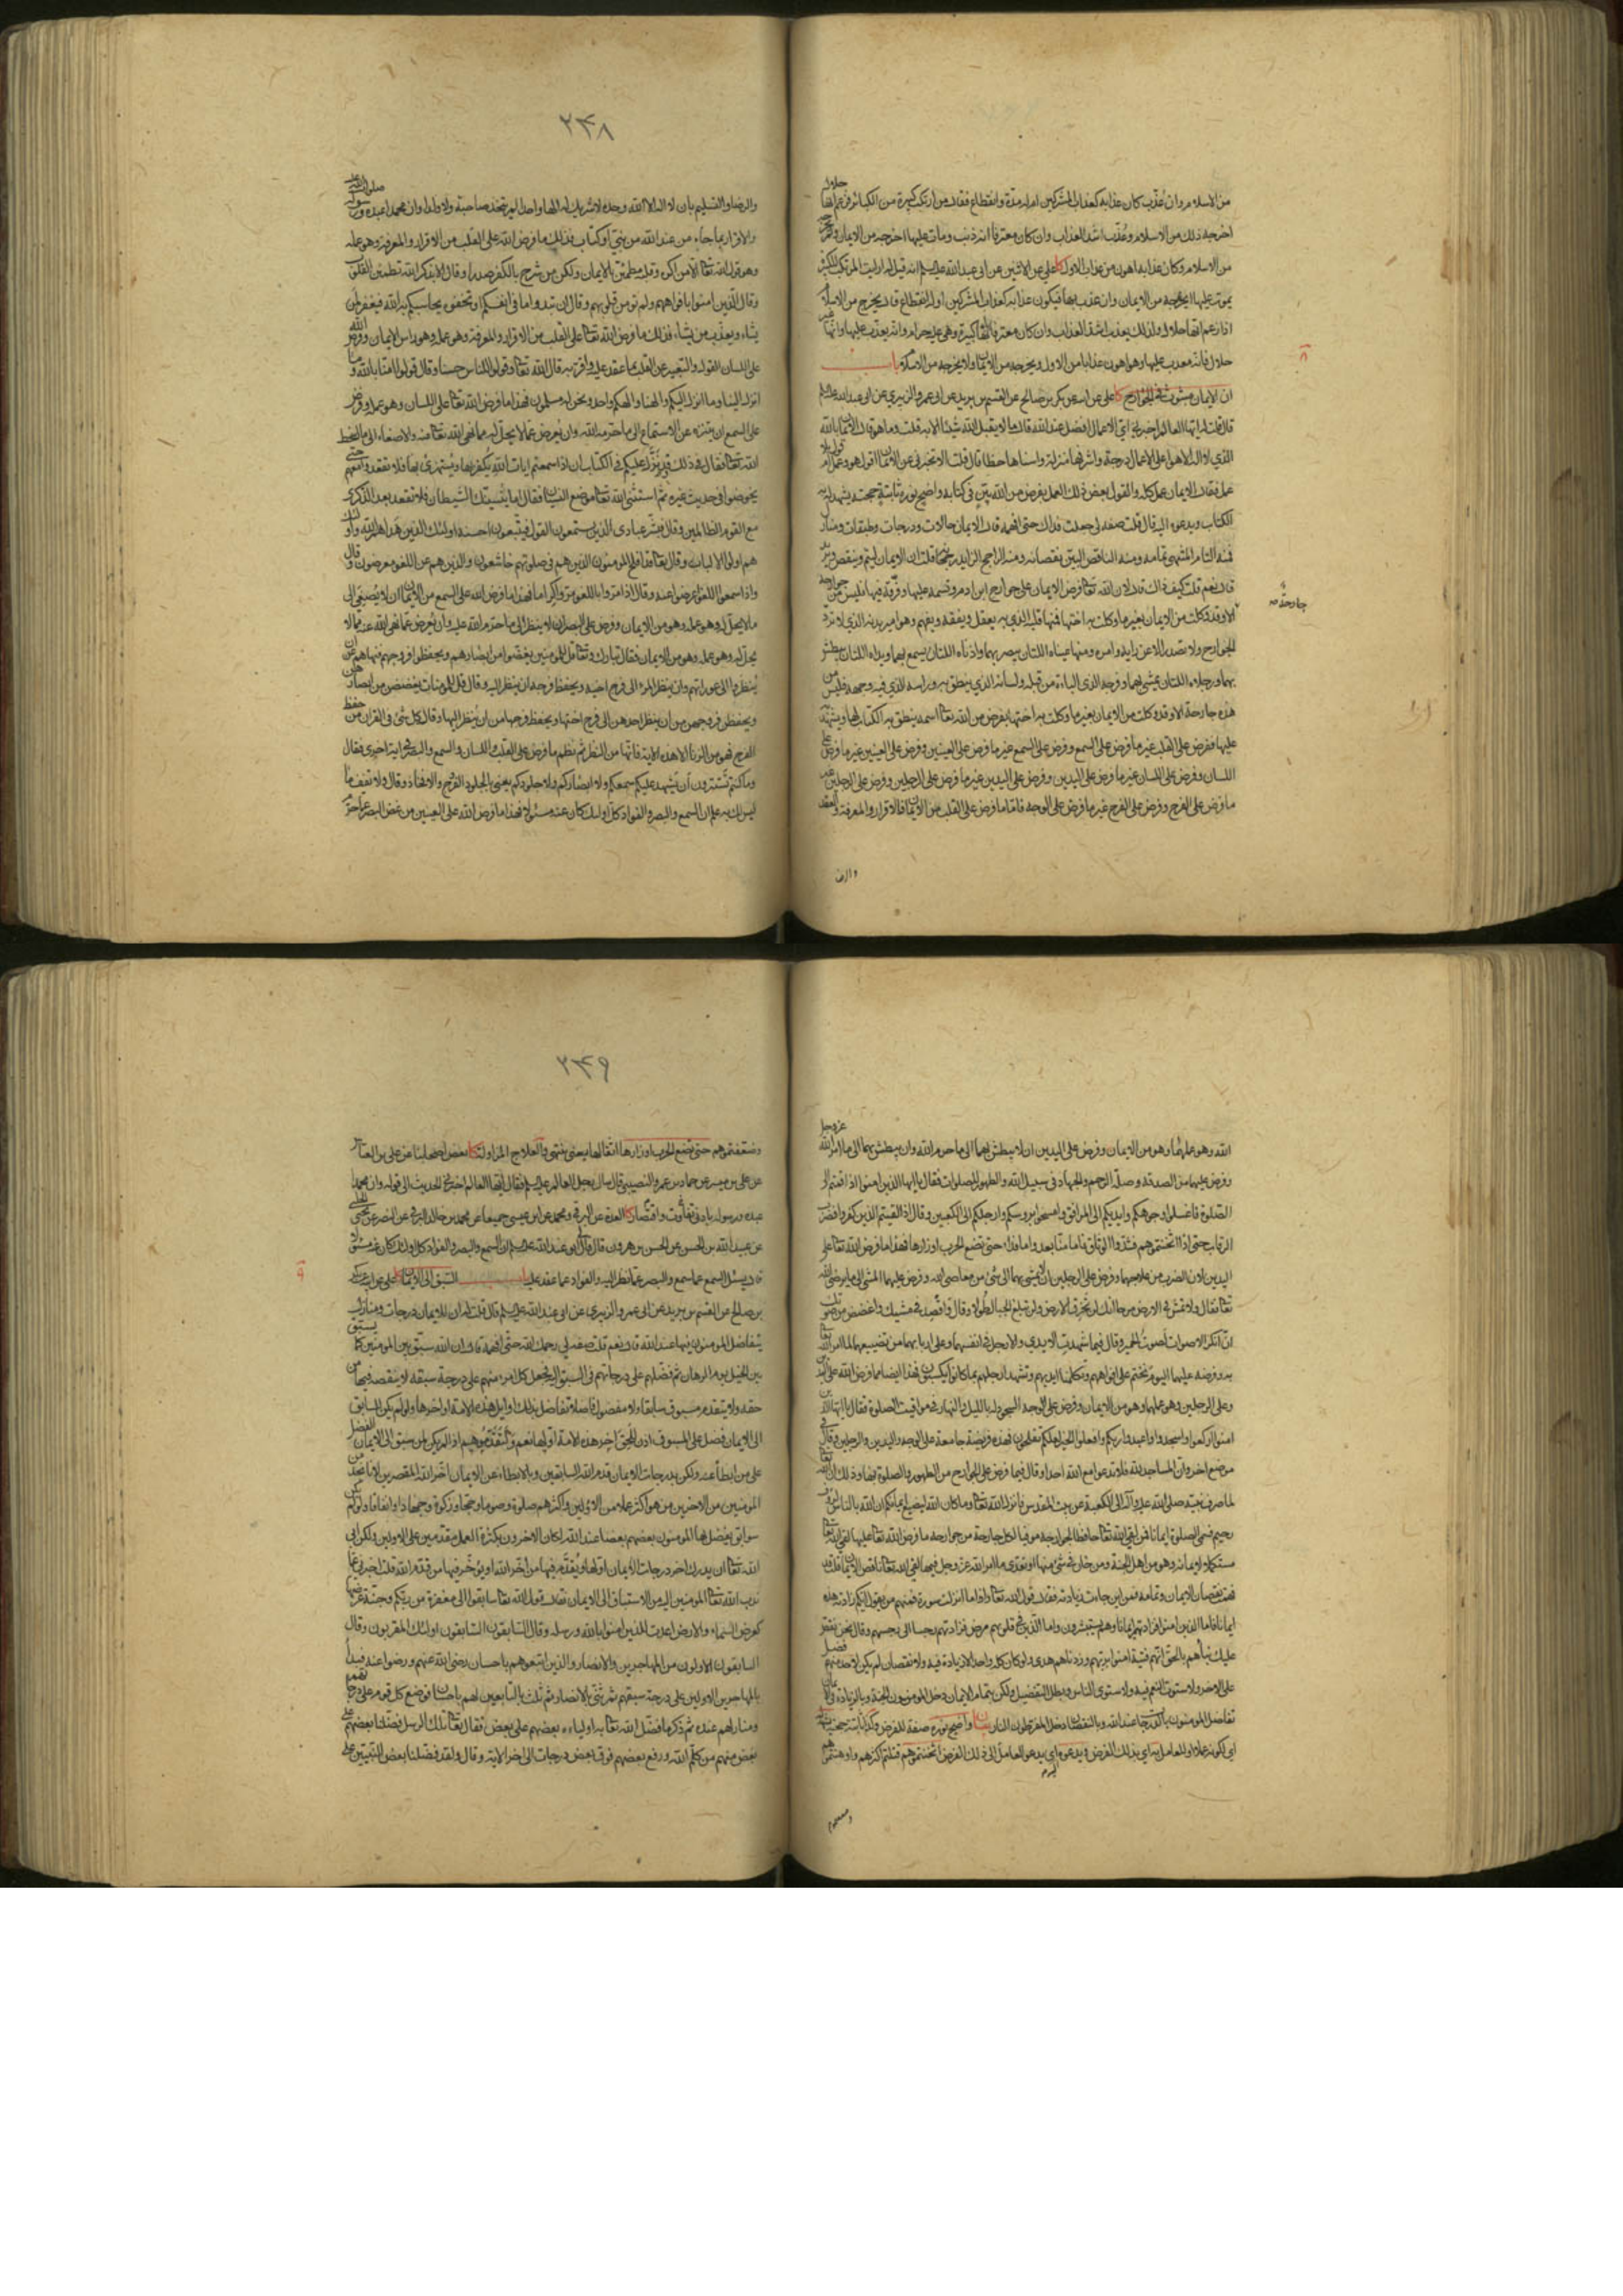 من الاسلام وان عذّب كان عذابه كعذاب المشركين ام له مدة وانقطاع فقال من ارتكب كبيرة من الكبائر فزعم انها حلال
اخرجه ذلك من الاسلام وعذّب اشد العذاب وان كان معترفا انه ذنب ومات عليها اخرجه من الايمان ولم يخرجه
من الاسلام وكان عذابه اهون من عذاب الاول كا علي عن الاثنين عن ابي عبد الله عليه السلم انه قيل له ارايت المرتكب للكبيرة
يموت عليها ايخرجه من الايمان وان عذب بها فيكون عذابه كعذاب المشركين او له انقطاع قال يخرج من الاسلام
اذا زعم انها حلال ولذلك يعذب اشد العذاب وان كان معترفا بانها كبيرة وهي عليه حرام وانه يعذب عليها وانها غير
حلال فانه معذب عليها وهو اهون عذابا من الاول ويخرجه من الايمان ولا يخرجه من الاسلام باب
ان الايمان مبثوث في الجوارح كا علي عن ابيه عن بكر بن صالح عن القسم بن بريد عن ابي عمرو الزبيري عن ابي عبد الله عليه السلم
قال قلت له ايها العالم اخبرني اي الاعمال افضل عند الله قال ما لا يقبل الله شيئا الا به قلت وما هو قال الايمان بالله
الذي لا اله الا هو اعلى الاعمال درجة واشرفها منزلة واسناها حظا قال قلت الا تخبرني عن الايمان اقول هو وعمل ام قول بلا
عمل فقال الايمان عمل كله والقول بعض ذلك العمل بفرض من الله بيّن في كتابه واضح نوره ثابتة حجته يشهد له به
الكتاب ويدعوه اليه قال قلت صفه لي جعلت فداك حتى افهمه قال الايمان حالات ودرجات وطبقات ومنازل
فمنه التام المنتهى تمامه ومنه الناقص البيّن نقصانه ومنه الراجح الزايد رجحانه قلت ان الايمان ليتم وينقص ويزيد
قال نعم قلت كيف ذاك قال لان الله تعالى فرض الايمان على جوارح ابن ادم وقسمه عليها وفرّقه فيها فليس من جوارحه
جارحة
الا وقد وكلت من الايمان بغير ما وكلت به اختها فمنها قلبه الذي به يعقل ويفقه ويفهم وهو امير بدنه الذي لا ترد
الجوارح ولا تصدر الا عن رايه وامره ومنها عيناه اللتان يبصر بهما واذناه اللتان يسمع بهما ويداه اللتان يبطش
بهما ورجلاه اللتان يمشي بهما وفرجه الذي الباءة من قبله ولسانه الذي ينطق به وراسه الذي فيه وجهه فليس من
هذه جارحة الا وقد وكلت من الايمان بغير ما وكلت به اختها بفرض من الله تعالى اسمه ينطق به الكتاب لها ويشهد به
عليها ففرض على القلب غير ما فرض على السمع وفرض على السمع غير ما فرض على العينين وفرض على العينين غير ما فرض على
اللسان وفرض على اللسان غير ما فرض على اليدين وفرض على اليدين غير ما فرض على الرجلين وفرض على الرجلين غير
ما فرض على الفرج وفرض على الفرج غير ما فرض على الوجه فاما ما فرض على القلب من الايمان فالاقرار والمعرفة والعقد
والرضا
٢٣٨
والرضا والتسليم بان لا اله الا الله وحده لا شريك له الها واحدا لم يتخذ صاحبة ولا ولدا وان محمدا عبده ورسوله صلوات الله عليه
والاقرار بما جاء من عند الله من نبيّ او كتاب فذلك ما فرض الله على القلب من الاقرار والمعرفة وهو عمله
وهو قول الله تعالى الا من اكره وقلبه مطمئن بالايمان ولكن من شرح بالكفر صدرا وقال الا بذكر الله تطمئن القلوب
وقال الذين امنوا بافواههم ولم تؤمن قلوبهم وقال ان تبدوا ما في انفسكم او تخفوه يحاسبكم به الله فيغفر لمن
يشاء ويعذب من يشاء فذلك ما فرض الله تعالى على القلب من الاقرار والمعرفة وهو عمله وهو راس الايمان وفرض الله
على اللسان القول والتعبير عن القلب بما عقد عليه واقرّ به قال الله تعالى وقولوا للناس حسنا وقال قولوا امنا بالله وما
انزل الينا وما انزل اليكم والهنا والهكم واحد ونحن له مسلمون فهذا ما فرض الله تعالى على اللسان وهو عمله وفرض
على السمع ان يتنزه عن الاستماع الى ما حرّم الله وان يعرض عما لا يحلّ له مما نهى الله تعالى عنه والاصغاء الى ما اسخط
الله تعالى فقال في ذلك وقد نزّل عليكم في الكتاب ان اذا سمعتم ايات الله يكفر بها ويستهزئ بها فلا تقعدوا معهم حتى
يخوضوا في حديث غيره ثم استثنى الله تعالى موضع النسيان فقال اما ينسينّك الشيطان فلا تقعد بعد الذكرى
مع القوم الظالمين وقال فبشّر عبادي الذين يستمعون القول فيتبعون احسنه اولئك الذين هداهم الله واولئك
هم اولوا الالباب وقال تعالى قد افلح المؤمنون الذين هم في صلوتهم خاشعون والذين هم عن اللغو معرضون وقال
واذا سمعوا اللغو اعرضوا عنه وقال اذا مروا باللغو مروا كراما فهذا ما فرض الله على السمع من الايمان ان لا يصغي الى
ما لا يحل له وهو عمله وهو من الايمان وفرض على البصر ان لا ينظر الى ما حرم الله عليه وان يعرض عما نهى الله عنه مما لا
يحل له وهو عمله وهو من الايمان فقال تبارك وتعالى قل للمؤمنين يغضوا من ابصارهم ويحفظوا فروجهم فنهاهم عن ان
ينظروا الى عوراتهم وان ينظر المرء الى فرج اخيه ويحفظ فرجه ان ينظر اليه وقال قل للمؤمنات يغضضن من ابصارهن
ويحفظن فروجهن من ان ينظر احدهن الى فرج اختها ويحفظ فرجها من ان ينظر اليها وقال كل شئ في القران من حفظ
الفرج فهو من الزنا الا هذه الاية فانها من النظر ثم نظم ما فرض على القلب واللسان والسمع والبصر في اية اخرى فقال
وما كنتم تستترون ان يشهد عليكم سمعكم ولا ابصاركم ولا جلودكم يعني بالجلود الفروج والافخاذ وقال ولا تقف ما
ليس لك به علم ان السمع والبصر والفواد كل اولئك كان عنه مسئولا فهذا ما فرض الله على العينين من غض البصر عما حرّم
الله وهو عملهما وهو من الايمان وفرض على اليدين ان لا يبطش بهما الى ما حرم الله وان يبطش بهما الى ما امر الله عز وجل
وفرض عليهما من الصدقة وصلة الرحم والجهاد في سبيل الله والطهور للصلوات فقال يا ايها الذين امنوا اذا قمتم الى
الصلوة فاغسلوا وجوهكم وايديكم الى المرافق وامسحوا برؤسكم وارجلكم الى الكعبين وقال اذا لقيتم الذين كفروا فضرب
الرقاب حتى اذا اثخنتموهم فشدوا الوثاق فاما منّا بعد واما فداء حتى تضع الحرب اوزارها فهذا ما فرض الله تعالى على
اليدين لان الضرب من علاجهما وفرض على الرجلين ان لا يمشي بهما الى شئ من معاصي الله وفرض عليهما المشي الى ما يرضي الله
تعالى فقال ولا تمش في الارض مرحا انك لن تخرق الارض ولن تبلغ الجبال طولا وقال واقصد في مشيك واغضض من صوتك
ان انكر الاصوات لصوت الحمير وقال فيما شهدت الايدي والارجل على انفسهما وعلى اربابهما من تضييعهما لما امر الله تعالى
به وفرضه عليهما اليوم نختم على افواههم وتكلمنا ايديهم وتشهد ارجلهم بما كانوا يكسبون فهذا ايضا مما فرض الله على اليدين
وعلى الرجلين وهو عملهما وهو من الايمان وفرض على الوجه السجود له بالليل والنهار في مواقيت الصلوة فقال يا ايها الذين
امنوا اركعوا واسجدوا واعبدوا ربكم وافعلوا الخير لعلكم تفلحون فهذه فريضة جامعة على الوجه واليدين والرجلين وقال في
موضع اخر وان المساجد لله فلا تدعوا مع الله احدا وقال فيما فرض على الجوارح من الطهور والصلوة بها وذلك ان الله تعالى
لما صرف نبيه صلى الله عليه وآله الى الكعبة عن بيت المقدس فانزل الله تعالى وما كان الله ليضيع ايمانكم ان الله بالناس لرؤف
رحيم فسمى الصلوة ايمانا فمن لقي الله تعالى حافظا لجوارحه موفيا كل جارحة من جوارحه ما فرض الله تعالى عليها لقي الله تعالى
مستكملا لايمانه وهو من اهل الجنة ومن خان في شئ منها او تعدى ما امر الله عز وجل فيها لقي الله تعالى ناقص الايمان قلت قد
فهمت نقصان الايمان وتمامه فمن اين جاءت زيادته فقال قول الله تعالى واذا ما انزلت سورة فمنهم من يقول ايكم زادته هذه
ايمانا فاما الذين امنوا فزادتهم ايمانا وهم يستبشرون واما الذين في قلوبهم مرض فزادتهم رجسا الى رجسهم وقال نحن نقص
عليك نبأهم بالحق انهم فتية امنوا بربهم وزدناهم هدى ولو كان كله واحدا لا زيادة فيه ولا نقصان لم يكن لاحد منهم فضل
على الاخر ولاستوت النعم فيه ولاستوى الناس وبطل التفضيل ولكن بتمام الايمان دخل المؤمنون الجنة وبالزيادة في الايمان
تفاضل المؤمنون بالدرجات عند الله وبالنقصان دخل المفرطون النار بيان واضح نوره صفة للفرض وكذا ثابتة حجته يشهد له
اي لكونه عملا او للعامل به اي بذلك الفرض ويدعوه اي يدعو العامل الى ذلك الفرض اثخنتموهم قتلتم اكثرهم واوهنتموهم
٢٣٩
وضعفتموهم حتى تضع الحرب اوزارها اثقالها يعني ينتهي والعلاج المزاولة كا بعض اصحابنا عن علي بن العباس
عن علي بن ميسر عن حماد بن عمرو النصيبي قال سال رجل العالم عليه السلم فقال ايها العالم اخبرني الحديث الى قوله وان محمدا
عبده ورسوله بادنى تفاوت واقتصار كا العدة عن البرقي ومحمد عن ابن عيسى جميعا عن محمد بن خالد البرقي عن النضر عن يحيى الحلبي
عن عبيد الله بن الحسن عن الحسن بن هرون قال قال لي ابو عبد الله عليه السلم ان السمع والبصر والفواد كل اولئك كان عنه مسئولا
قال يسئل السمع عما سمع والبصر عما نظر اليه والفواد عما عقد عليه باب السبق الى الايمان كا علي عن ابيه عن بكر
بن صالح عن القسم بن بريد عن ابي عمرو الزبيري عن ابي عبد الله عليه السلم قال قلت له ان للايمان درجات ومنازل
يتفاضل المومنون فيها عند الله قال نعم قلت صفه لي رحمك الله حتى افهمه قال ان الله سبّق بين المومنين كما يسبّق
بين الخيل يوم الرهان ثم فضّلهم على درجاتهم في السبق اليه فجعل كل امرء منهم على درجة سبقه لا ينقصه فيها من
حقه ولا يتقدم مسبوق سابقا ولا مفضول فاضلا تفاضل بذلك اوايل هذه الامة واواخرها ولو لم يكن للسابق
الى الايمان فضل على المسبوق اذن للحق اخر هذه الامة اولها نعم ولتقدموهم اذ لم يكن لمن سبق الى الايمان الفضل
على من ابطأ عنه ولكن بدرجات الايمان قدم الله السابقين وبالابطاء عن الايمان اخر الله المقصرين لانا نجد من
المومنين من الاخرين من هو اكثر عملا من الاولين واكثرهم صلوة وصوما وحجا وزكوة وجهادا وانفاقا ولو لم يكن
سوابق يفضل بها المومنون بعضهم بعضا عند الله لكان الاخرون بكثرة العمل مقدمين على الاولين ولكن ابى
الله تعالى ان يدرك اخر درجات الايمان اولها ويقدّم فيها من اخّر الله او يؤخّر فيها من قدّم الله قلت اخبرني عما
ندب الله تعالى المومنين اليه من الاستباق الى الايمان فقال قول الله تعالى سابقوا الى مغفرة من ربكم وجنة عرضها
كعرض السماء والارض اعدت للذين امنوا بالله ورسله وقال السابقون السابقون اولئك المقربون وقال
السابقون الاولون من المهاجرين والانصار والذين اتبعوهم باحسان رضي الله عنهم ورضوا عنه فبدأ
بالمهاجرين الاولين على درجة سبقهم ثم ثنّى بالانصار ثم ثلث بالتابعين لهم باحسان فوضع كل قوم على درجاتهم
ومنازلهم عنده ثم ذكر ما فضّل الله تعالى به اولياءه بعضهم على بعض فقال تعالى تلك الرسل فضّلنا بعضهم على
بعض منهم من كلّم الله ورفع بعضهم فوق بعض درجات الى اخر الاية وقال ولقد فضّلنا بعض النبيين على